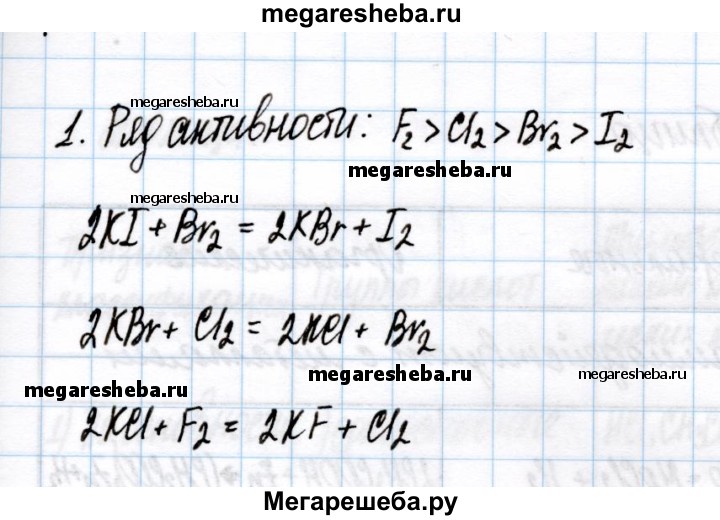 megaresheba.ru
megaresheba.ru
1. Ряд активности: F₂ > Cl₂ > Br₂ > I₂
megaresheba.ru
megaresheba.ru
2KI + Br₂ = 2KBr + I₂
2KBr + Cl₂ = 2KCl + Br₂
megaresheba.ru
megaresheba.ru
2KCl + F₂ = 2KF + Cl₂
megaresheba.ru
Мегарешеба.ру